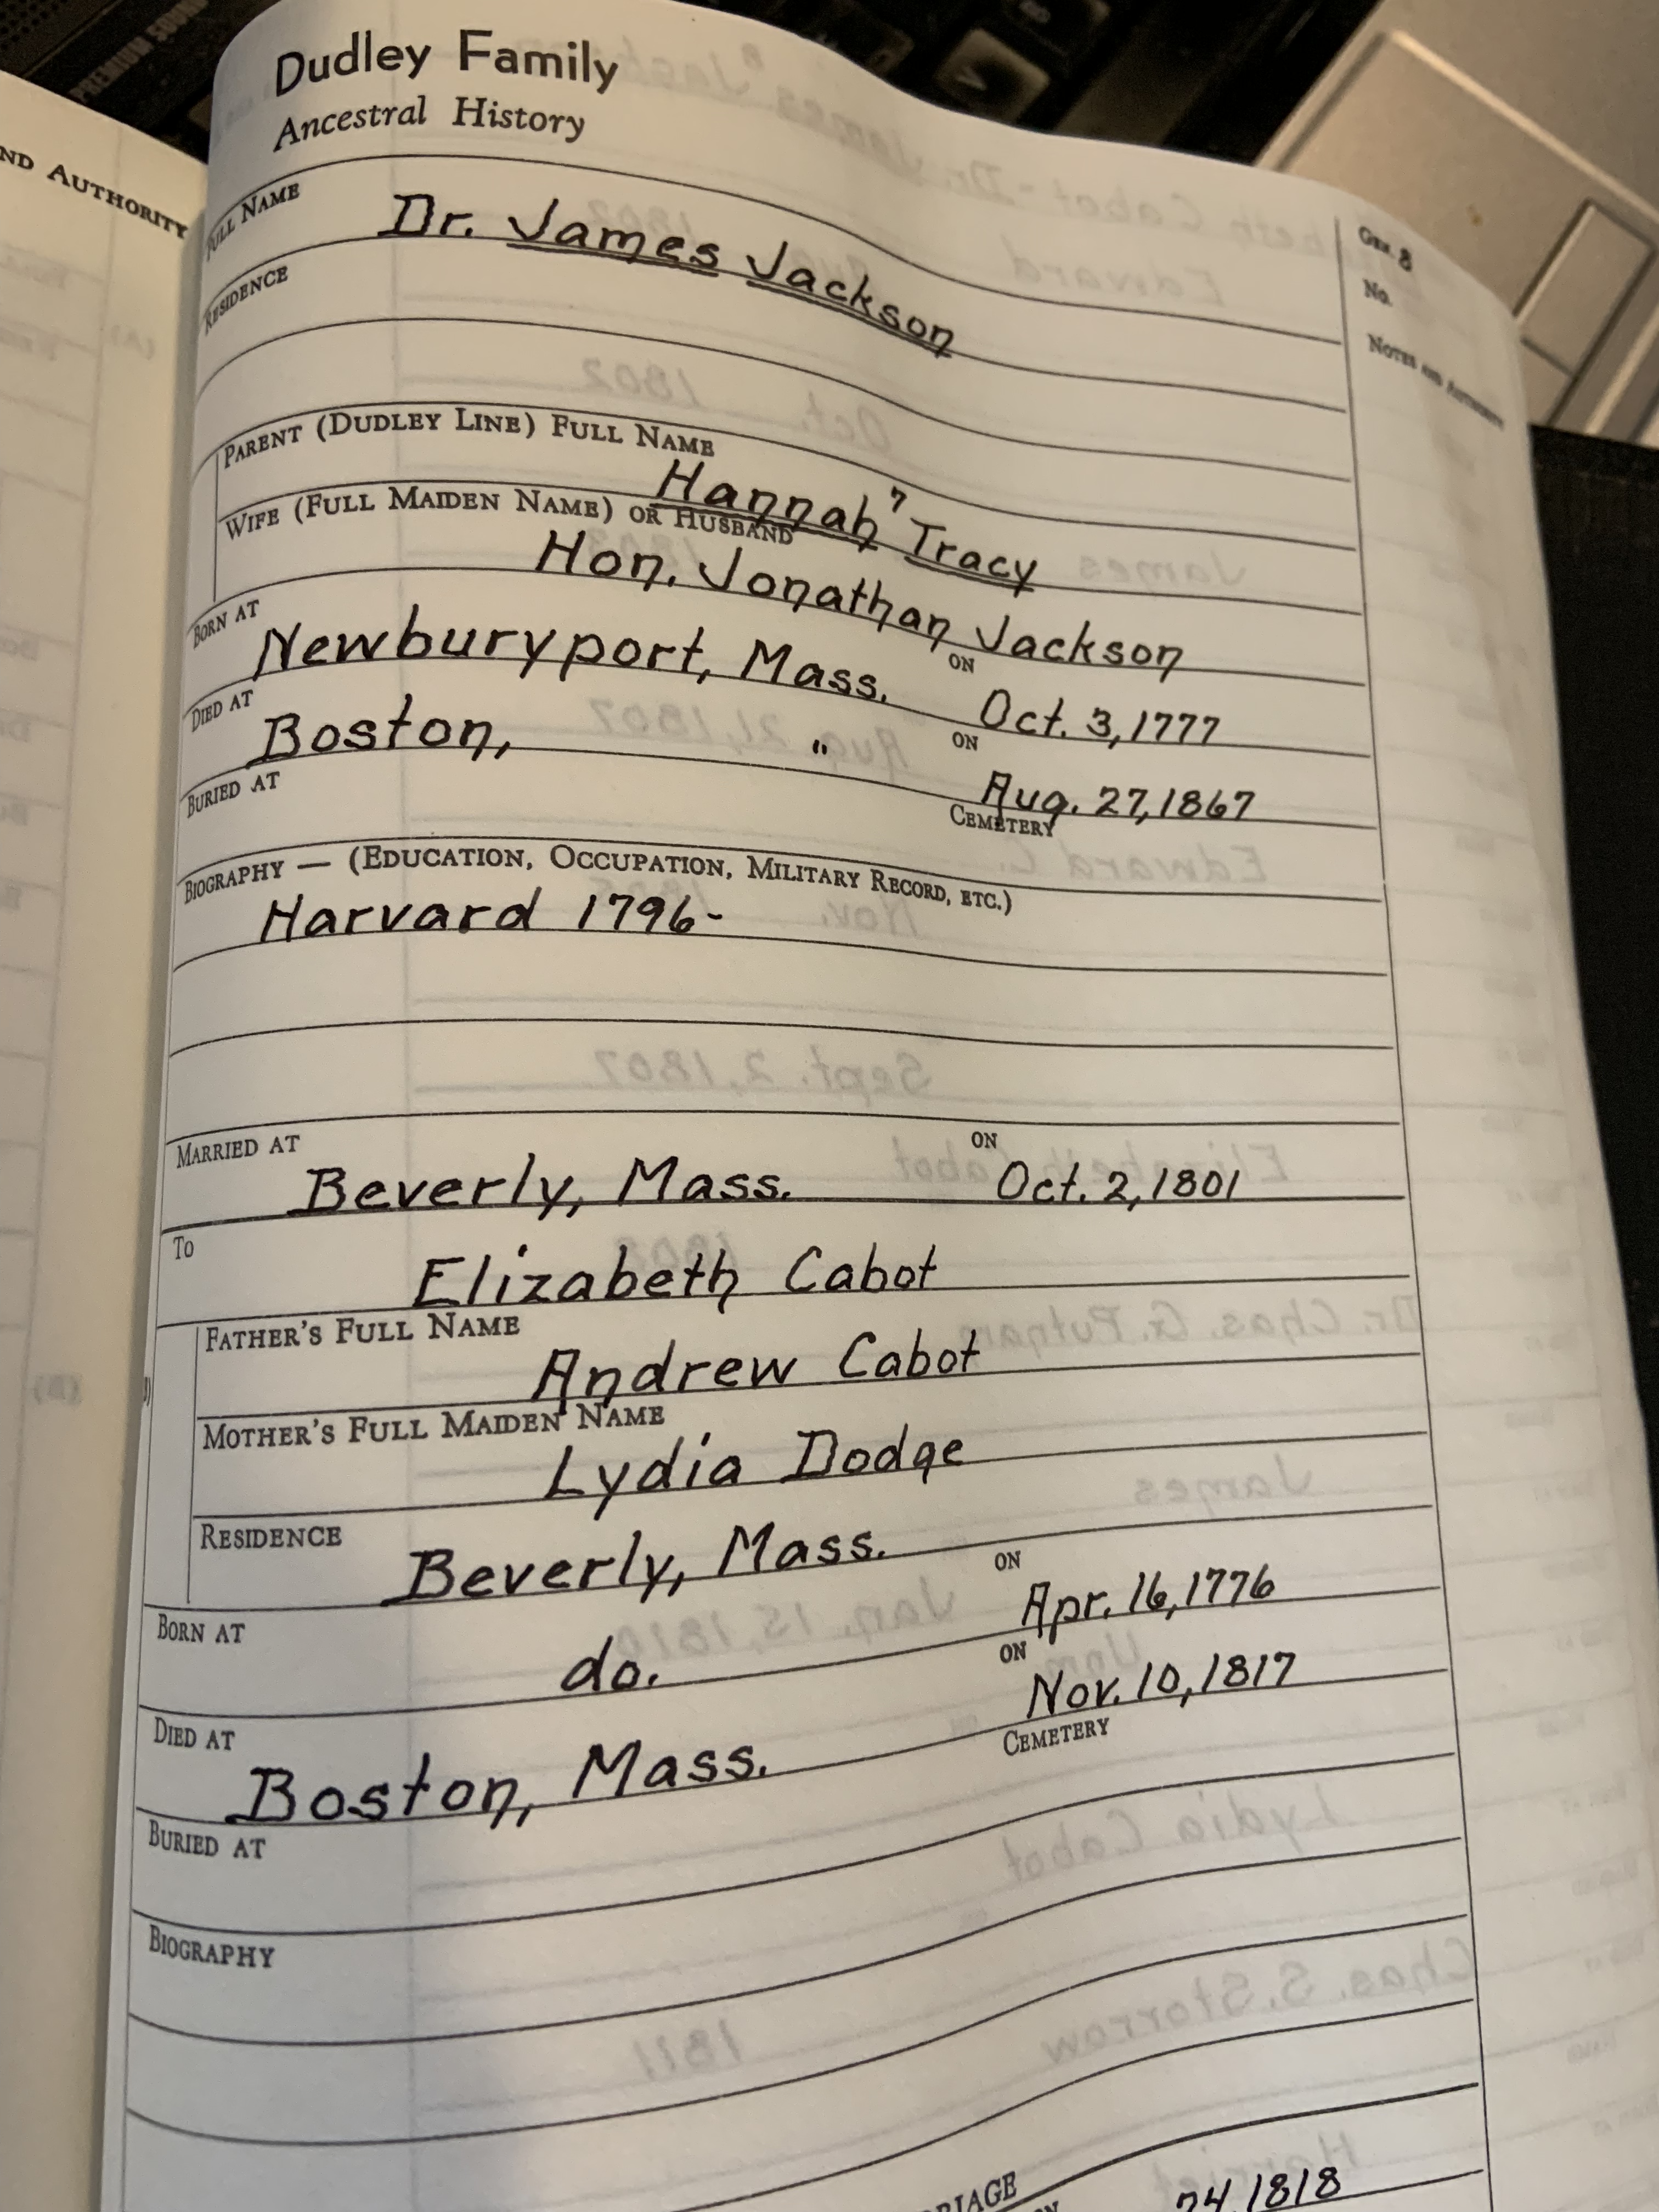 PREMIUM SOUND
ND AUTHORITY
Dudley Family
Ancestral History
GEN. 8
NO.
NOTES AND AUTHORITY
FULL NAME Dr. James Jackson
RESIDENCE
PARENT (DUDLEY LINE) FULL NAME Hannah⁷ Tracy
WIFE (FULL MAIDEN NAME) OR HUSBAND Hon. Jonathan Jackson
BORN AT Newburyport, Mass. ON Oct. 3, 1777
DIED AT Boston, " ON Aug. 27, 1867
BURIED AT CEMETERY
BIOGRAPHY — (EDUCATION, OCCUPATION, MILITARY RECORD, ETC.)
Harvard 1796-
MARRIED AT Beverly, Mass. ON Oct. 2, 1801
TO Elizabeth Cabot
FATHER'S FULL NAME Andrew Cabot
MOTHER'S FULL MAIDEN NAME Lydia Dodge
RESIDENCE Beverly, Mass.
BORN AT do. ON Apr. 16, 1776
DIED AT Boston, Mass. ON Nov. 10, 1817
BURIED AT CEMETERY
BIOGRAPHY
RIAGE
ON 24, 1818